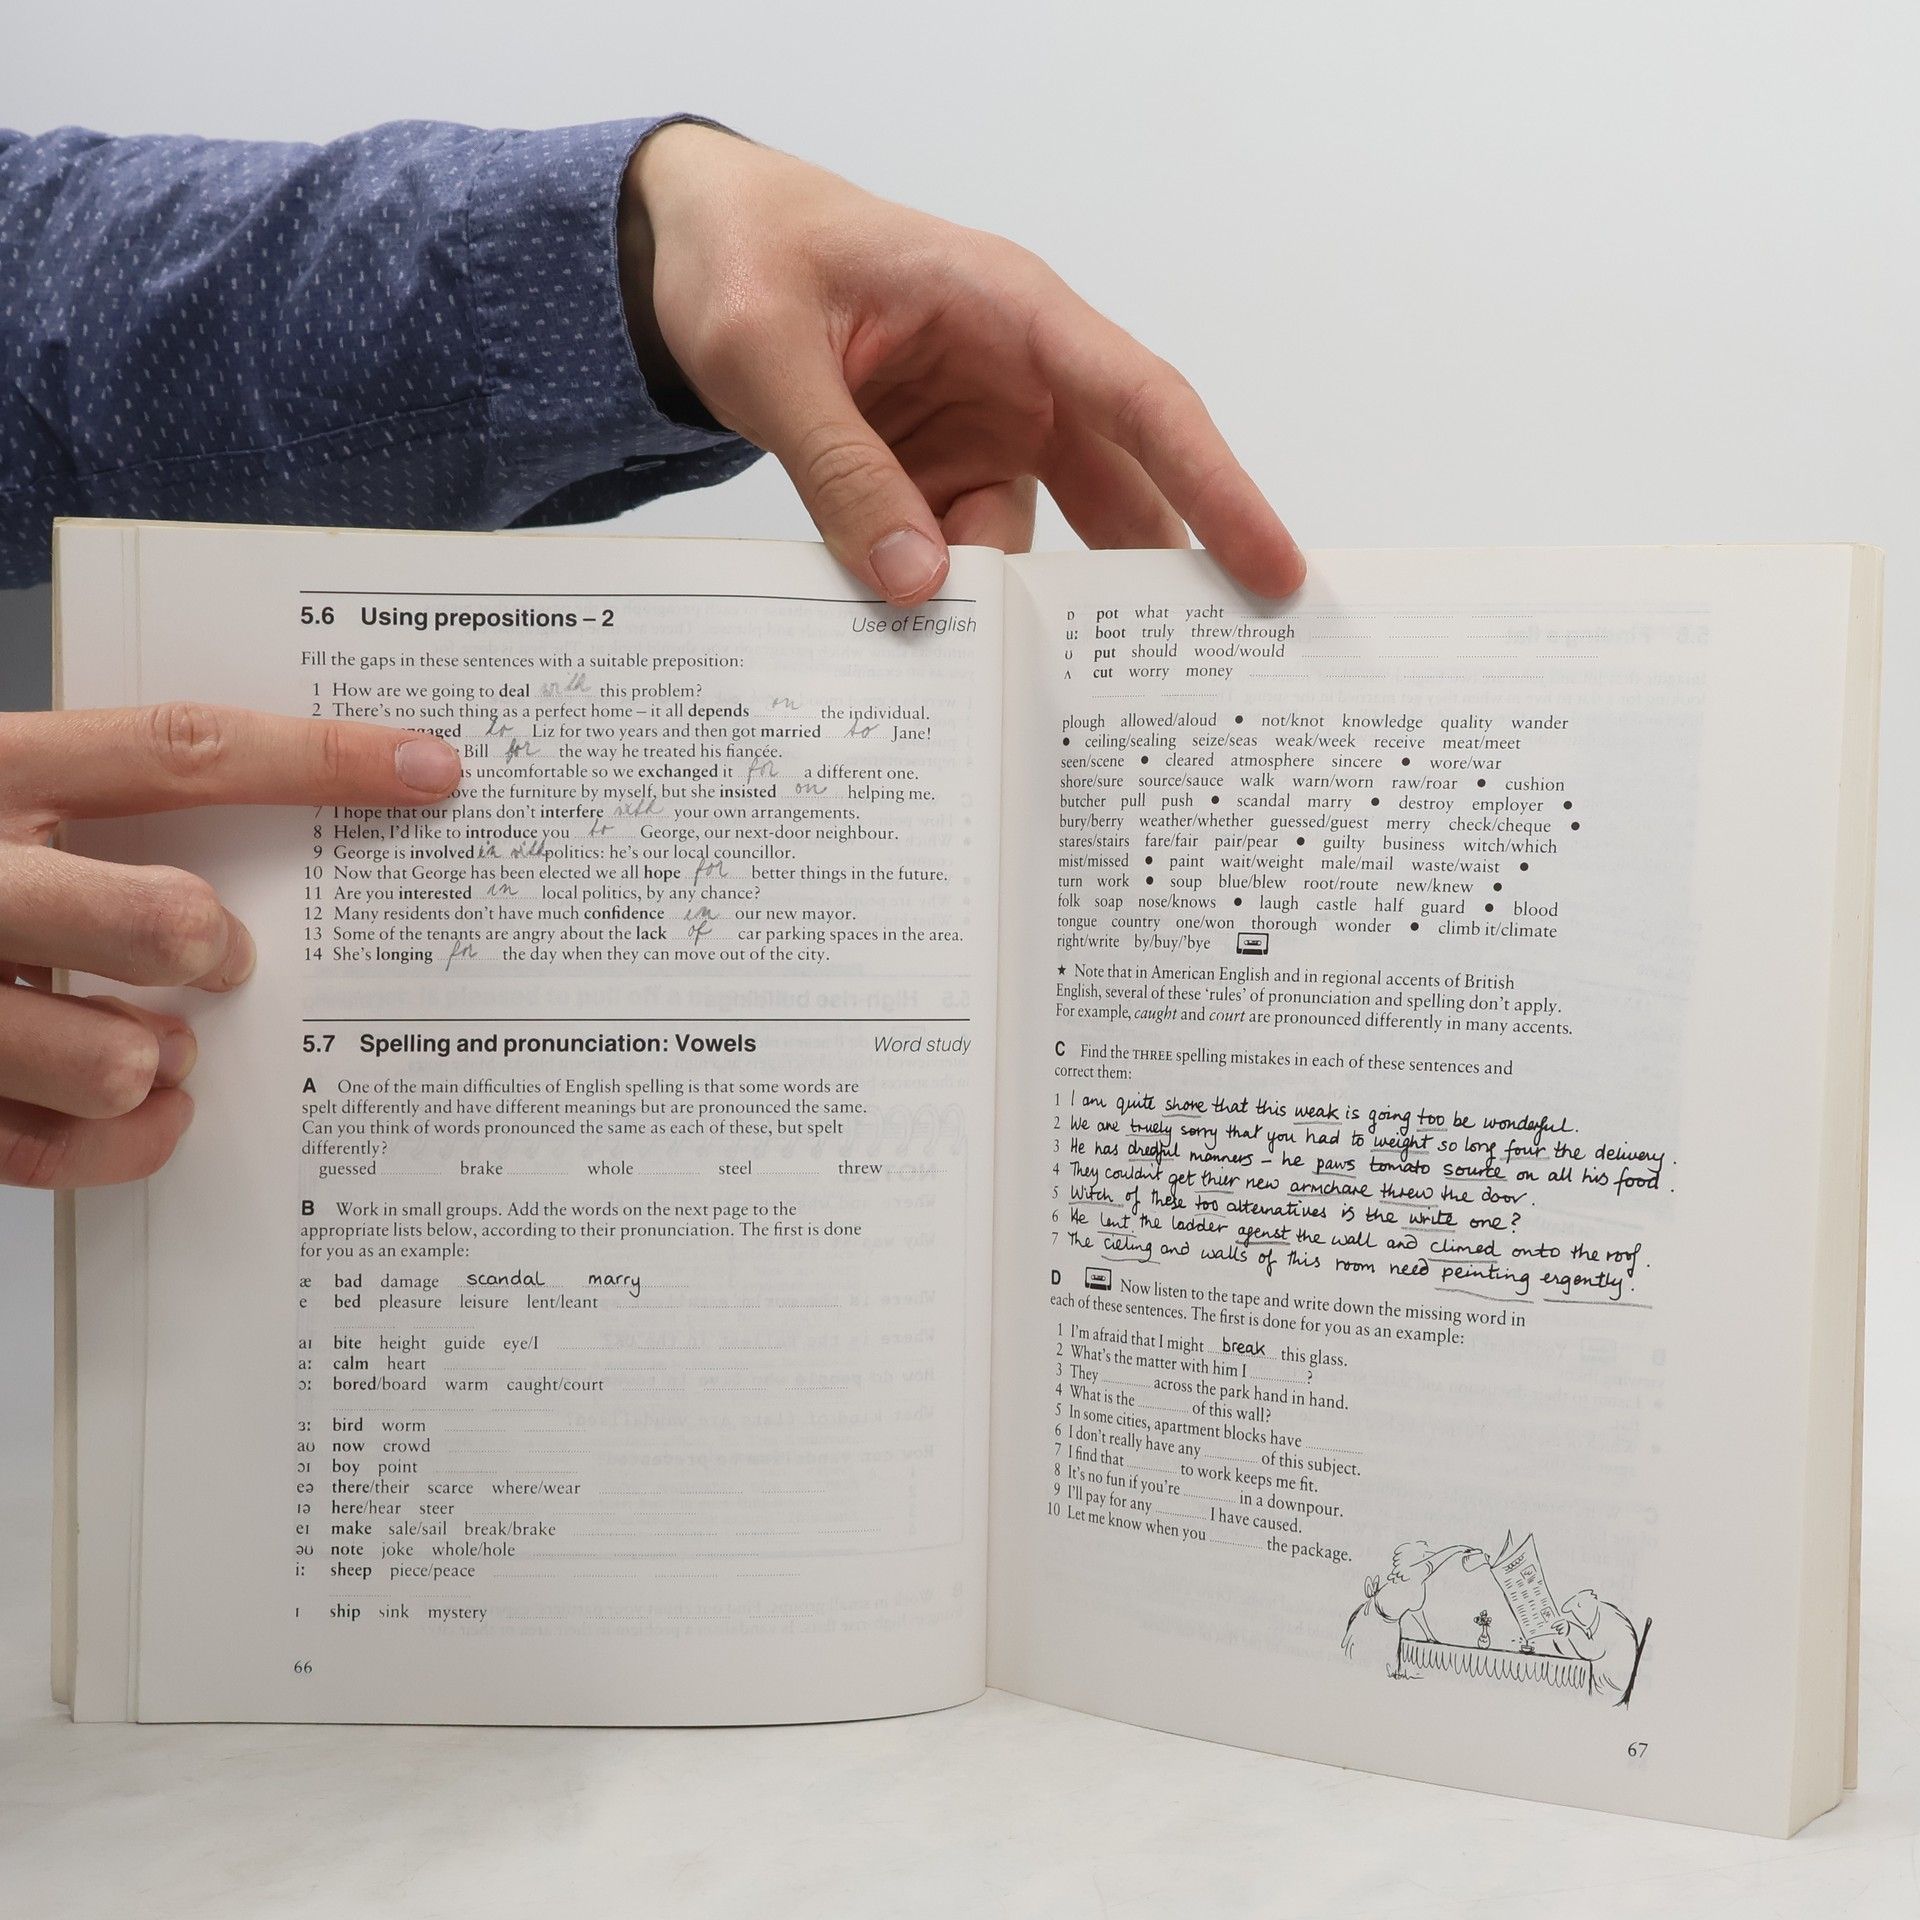 5.6 Using prepositions – 2
Use of English
Fill the gaps in these sentences with a suitable preposition:
1 How are we going to deal with this problem?
2 There's no such thing as a perfect home – it all depends on the individual.
to Liz for two years and then got married to Jane!
Bill for the way he treated his fiancée.
uncomfortable so we exchanged it for a different one.
the furniture by myself, but she insisted on helping me.
7 I hope that our plans don't interfere with your own arrangements.
8 Helen, I'd like to introduce you to George, our next-door neighbour.
9 George is involved in with politics: he's our local councillor.
10 Now that George has been elected we all hope for better things in the future.
11 Are you interested in local politics, by any chance?
12 Many residents don't have much confidence in our new mayor.
13 Some of the tenants are angry about the lack of car parking spaces in the area.
14 She's longing for the day when they can move out of the city.
5.7 Spelling and pronunciation: Vowels
Word study
A One of the main difficulties of English spelling is that some words are
spelt differently and have different meanings but are pronounced the same.
Can you think of words pronounced the same as each of these, but spelt
differently?
guessed brake whole steel threw
B Work in small groups. Add the words on the next page to the
appropriate lists below, according to their pronunciation. The first is done
for you as an example:
æ bad damage scandal marry
e bed pleasure leisure lent/leant
aɪ bite height guide eye/I
aː calm heart
ɔː bored/board warm caught/court
ɜː bird worm
aʊ now crowd
ɔɪ boy point
eə there/their scarce where/wear
ɪə here/hear steer
eɪ make sale/sail break/brake
əʊ note joke whole/hole
iː sheep piece/peace
ɪ ship sink mystery
66
ɒ pot what yacht
uː boot truly threw/through
ʊ put should wood/would
ʌ cut worry money
plough allowed/aloud ● not/knot knowledge quality wander
● ceiling/sealing seize/seas weak/week receive meat/meet
seen/scene ● cleared atmosphere sincere ● wore/war
shore/sure source/sauce walk warn/worn raw/roar ● cushion
butcher pull push ● scandal marry ● destroy employer ●
bury/berry weather/whether guessed/guest merry check/cheque ●
stares/stairs fare/fair pair/pear ● guilty business witch/which
mist/missed ● paint wait/weight male/mail waste/waist ●
turn work ● soup blue/blew root/route new/knew ●
folk soap nose/knows ● laugh castle half guard ● blood
tongue country one/won thorough wonder ● climb it/climate
right/write by/buy/'bye
★ Note that in American English and in regional accents of British
English, several of these 'rules' of pronunciation and spelling don't apply.
For example, caught and court are pronounced differently in many accents.
C Find the THREE spelling mistakes in each of these sentences and
correct them:
1 I am quite shore that this weak is going too be wonderful.
2 We are truely sorry that you had to weight so long four the delivery.
3 He has dredful manners – he paws tomato source on all his food.
4 They couldn't get thier new armchare threw the door.
5 Witch of these too alternatives is the write one?
6 He lent the ladder agenst the wall and climed onto the roof.
7 The cieling and walls of this room need peinting ergently.
D Now listen to the tape and write down the missing word in
each of these sentences. The first is done for you as an example:
1 I'm afraid that I might break this glass.
2 What's the matter with him I ?
3 They across the park hand in hand.
4 What is the of this wall?
5 In some cities, apartment blocks have
6 I don't really have any of this subject.
7 I find that to work keeps me fit.
8 It's no fun if you're in a downpour.
9 I'll pay for any I have caused.
10 Let me know when you the package.
67